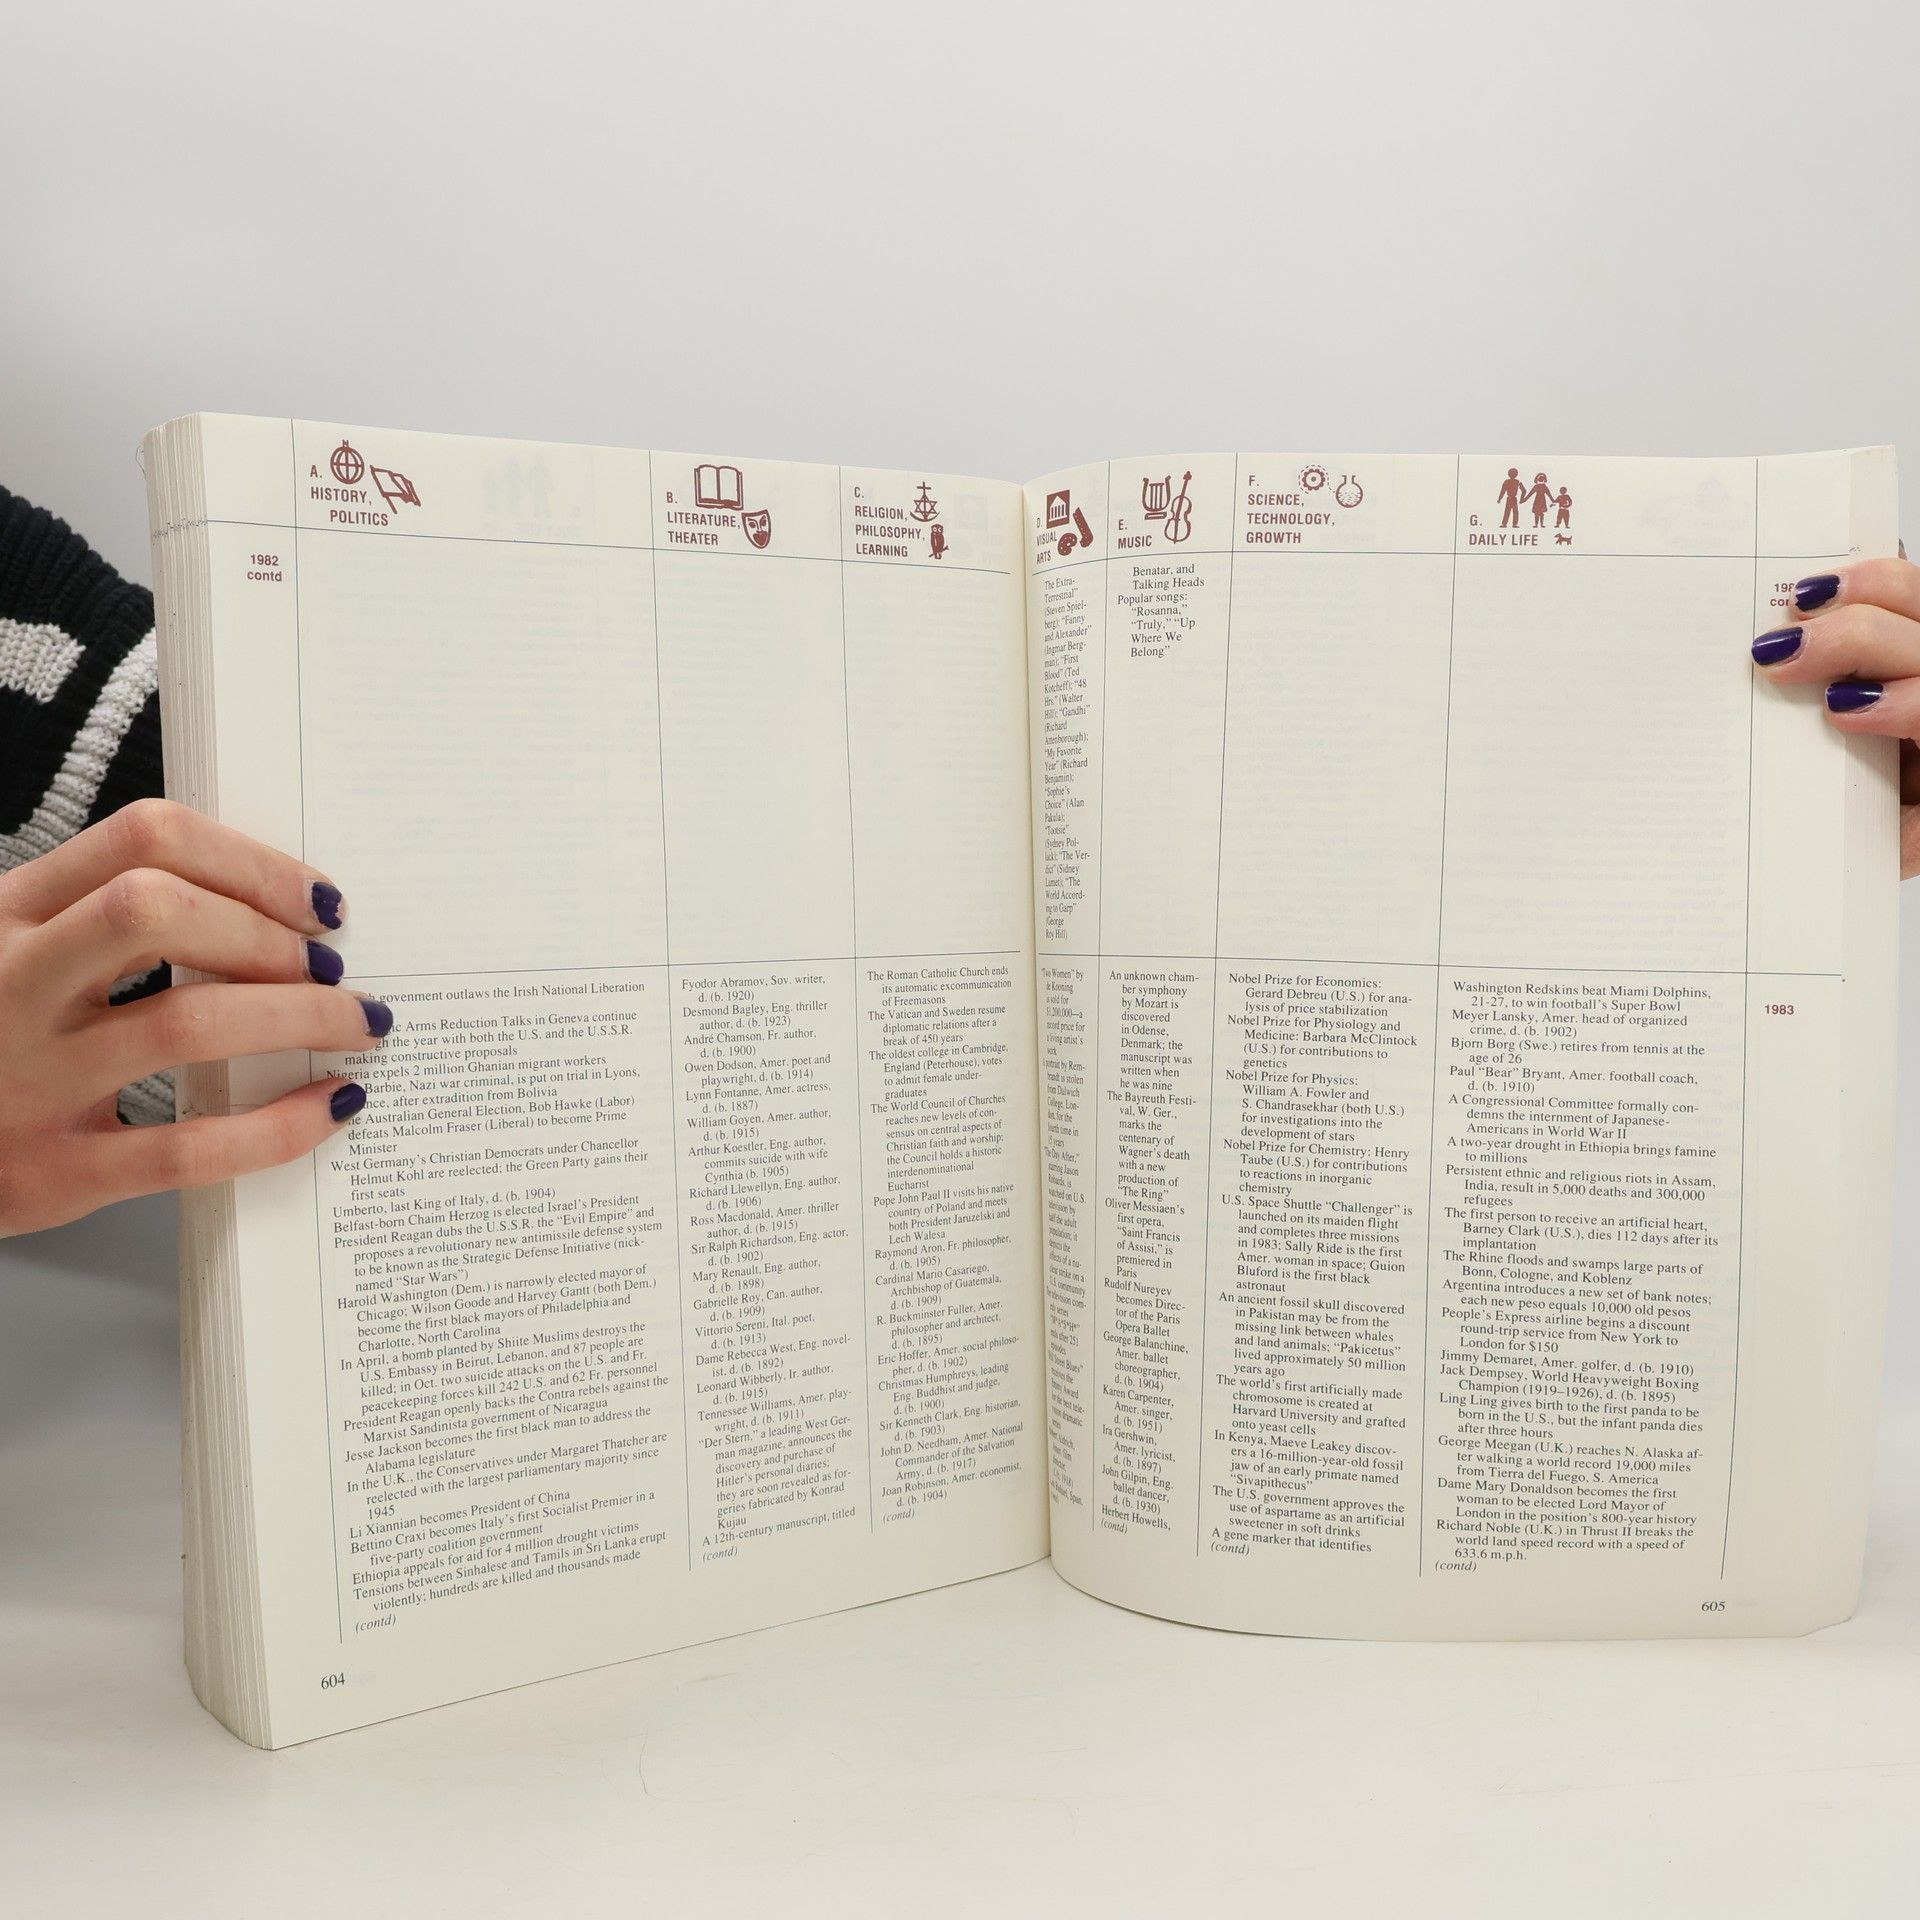 A.
HISTORY,
POLITICS
B.
LITERATURE,
THEATER
C.
RELIGION,
PHILOSOPHY,
LEARNING
1982
contd
govenment outlaws the Irish National Liberation
Arms Reduction Talks in Geneva continue
the year with both the U.S. and the U.S.S.R.
making constructive proposals
Nigeria expels 2 million Ghanian migrant workers
Barbie, Nazi war criminal, is put on trial in Lyons,
after extradition from Bolivia
Australian General Election, Bob Hawke (Labor)
defeats Malcolm Fraser (Liberal) to become Prime
Minister
West Germany's Christian Democrats under Chancellor
Helmut Kohl are reelected; the Green Party gains their
first seats
Umberto, last King of Italy, d. (b. 1904)
Belfast-born Chaim Herzog is elected Israel's President
President Reagan dubs the U.S.S.R. the "Evil Empire" and
proposes a revolutionary new antimissile defense system
to be known as the Strategic Defense Initiative (nick-
named "Star Wars")
Harold Washington (Dem.) is narrowly elected mayor of
Chicago; Wilson Goode and Harvey Gantt (both Dem.)
become the first black mayors of Philadelphia and
Charlotte, North Carolina
In April, a bomb planted by Shiite Muslims destroys the
U.S. Embassy in Beirut, Lebanon, and 87 people are
killed; in Oct. two suicide attacks on the U.S. and Fr.
peacekeeping forces kill 242 U.S. and 62 Fr. personnel
President Reagan openly backs the Contra rebels against the
Marxist Sandinista government of Nicaragua
Jesse Jackson becomes the first black man to address the
Alabama legislature
In the U.K., the Conservatives under Margaret Thatcher are
reelected with the largest parliamentary majority since
1945
Li Xiannian becomes President of China
Bettino Craxi becomes Italy's first Socialist Premier in a
five-party coalition government
Ethiopia appeals for aid for 4 million drought victims
Tensions between Sinhalese and Tamils in Sri Lanka erupt
violently; hundreds are killed and thousands made
(contd)
Fyodor Abramov, Sov. writer,
d. (b. 1920)
Desmond Bagley, Eng. thriller
author, d. (b. 1923)
André Chamson, Fr. author,
d. (b. 1900)
Owen Dodson, Amer. poet and
playwright, d. (b. 1914)
Lynn Fontanne, Amer. actress,
d. (b. 1887)
William Goyen, Amer. author,
d. (b. 1915)
Arthur Koestler, Eng. author,
commits suicide with wife
Cynthia (b. 1905)
Richard Llewellyn, Eng. author,
d. (b. 1906)
Ross Macdonald, Amer. thriller
author, d. (b. 1915)
Sir Ralph Richardson, Eng. actor,
d. (b. 1902)
Mary Renault, Eng. author,
d. (b. 1898)
Gabrielle Roy, Can. author,
d. (b. 1909)
Vittorio Sereni, Ital. poet,
d. (b. 1913)
Dame Rebecca West, Eng. novel-
ist, d. (b. 1892)
Leonard Wibberly, Ir. author,
d. (b. 1915)
Tennessee Williams, Amer. play-
wright, d. (b. 1911)
"Der Stern," a leading West Ger-
man magazine, announces the
discovery and purchase of
Hitler's personal diaries;
they are soon revealed as for-
geries fabricated by Konrad
Kujau
A 12th-century manuscript, titled
(contd)
The Roman Catholic Church ends
its automatic excommunication
of Freemasons
The Vatican and Sweden resume
diplomatic relations after a
break of 450 years
The oldest college in Cambridge,
England (Peterhouse), votes
to admit female under-
graduates
The World Council of Churches
reaches new levels of con-
sensus on central aspects of
Christian faith and worship;
the Council holds a historic
interdenominational
Eucharist
Pope John Paul II visits his native
country of Poland and meets
both President Jaruzelski and
Lech Walesa
Raymond Aron, Fr. philosopher,
d. (b. 1905)
Cardinal Mario Casariego,
Archbishop of Guatemala,
d. (b. 1909)
R. Buckminster Fuller, Amer.
philosopher and architect,
d. (b. 1895)
Eric Hoffer, Amer. social philoso-
pher, d. (b. 1902)
Christmas Humphreys, leading
Eng. Buddhist and judge,
d. (b. 1900)
Sir Kenneth Clark, Eng. historian,
d. (b. 1903)
John D. Needham, Amer. National
Commander of the Salvation
Army, d. (b. 1917)
Joan Robinson, Amer. economist,
d. (b. 1904)
(contd)
604
D.
VISUAL
ARTS
E.
MUSIC
F.
SCIENCE,
TECHNOLOGY,
GROWTH
G.
DAILY LIFE
The Extra-
Terrestrial"
(Steven Spiel-
berg); "Fanny
and Alexander"
(Ingmar Berg-
man); "First
Blood" (Ted
Kotcheff); "48
Hrs." (Walter
Hill); "Gandhi"
(Richard
Attenborough);
"My Favorite
Year" (Richard
Benjamin);
"Sophie's
Choice" (Alan
Pakula);
"Tootsie"
(Sydney Pol-
lack); "The Ver-
dict" (Sidney
Lumet); "The
World Accord-
ing to Garp"
(George
Roy Hill)
Benatar, and
Talking Heads
Popular songs:
"Rosanna,"
"Truly," "Up
Where We
Belong"
"Two Women" by
de Kooning
is sold for
$1,200,000—a
record price for
a living artist's
work
A portrait by Rem-
brandt is stolen
from Dulwich
College, Lon-
don, for the
fourth time in
15 years
"The Day After,"
starring Jason
Robards, is
watched on U.S.
television by
half the adult
population; it
depicts the
effects of a nu-
clear strike on a
U.S. community
An unknown cham-
ber symphony
by Mozart is
discovered
in Odense,
Denmark; the
manuscript was
written when
he was nine
The Bayreuth Festi-
val, W. Ger.,
marks the
centenary of
Wagner's death
with a new
production of
"The Ring"
Oliver Messiaen's
first opera,
"Saint Francis
of Assisi," is
premiered in
Paris
Rudolf Nureyev
becomes Direc-
tor of the Paris
Opera Ballet
George Balanchine,
Amer. ballet
choreographer,
d. (b. 1904)
Karen Carpenter,
Amer. singer,
d. (b. 1951)
Ira Gershwin,
Amer. lyricist,
d. (b. 1897)
John Gilpin, Eng.
ballet dancer,
d. (b. 1930)
Herbert Howells,
(contd)
Nobel Prize for Economics:
Gerard Debreu (U.S.) for ana-
lysis of price stabilization
Nobel Prize for Physiology and
Medicine: Barbara McClintock
(U.S.) for contributions to
genetics
Nobel Prize for Physics:
William A. Fowler and
S. Chandrasekhar (both U.S.)
for investigations into the
development of stars
Nobel Prize for Chemistry: Henry
Taube (U.S.) for contributions
to reactions in inorganic
chemistry
U.S. Space Shuttle "Challenger" is
launched on its maiden flight
and completes three missions
in 1983; Sally Ride is the first
Amer. woman in space; Guion
Bluford is the first black
astronaut
An ancient fossil skull discovered
in Pakistan may be from the
missing link between whales
and land animals; "Pakicetus"
lived approximately 50 million
years ago
The world's first artificially made
chromosome is created at
Harvard University and grafted
onto yeast cells
In Kenya, Maeve Leakey discov-
ers a 16-million-year-old fossil
jaw of an early primate named
"Sivapithecus"
The U.S. government approves the
use of aspartame as an artificial
sweetener in soft drinks
A gene marker that identifies
(contd)
Washington Redskins beat Miami Dolphins,
21-27, to win football's Super Bowl
Meyer Lansky, Amer. head of organized
crime, d. (b. 1902)
Bjorn Borg (Swe.) retires from tennis at the
age of 26
Paul "Bear" Bryant, Amer. football coach,
d. (b. 1910)
A Congressional Committee formally con-
demns the internment of Japanese-
Americans in World War II
A two-year drought in Ethiopia brings famine
to millions
Persistent ethnic and religious riots in Assam,
India, result in 5,000 deaths and 300,000
refugees
The first person to receive an artificial heart,
Barney Clark (U.S.), dies 112 days after its
implantation
The Rhine floods and swamps large parts of
Bonn, Cologne, and Koblenz
Argentina introduces a new set of bank notes;
each new peso equals 10,000 old pesos
People's Express airline begins a discount
round-trip service from New York to
London for $150
Jimmy Demaret, Amer. golfer, d. (b. 1910)
Jack Dempsey, World Heavyweight Boxing
Champion (1919–1926), d. (b. 1895)
Ling Ling gives birth to the first panda to be
born in the U.S., but the infant panda dies
after three hours
George Meegan (U.K.) reaches N. Alaska af-
ter walking a world record 19,000 miles
from Tierra del Fuego, S. America
Dame Mary Donaldson becomes the first
woman to be elected Lord Mayor of
London in the position's 800-year history
Richard Noble (U.K.) in Thrust II breaks the
world land speed record with a speed of
633.6 m.p.h.
(contd)
1983
605